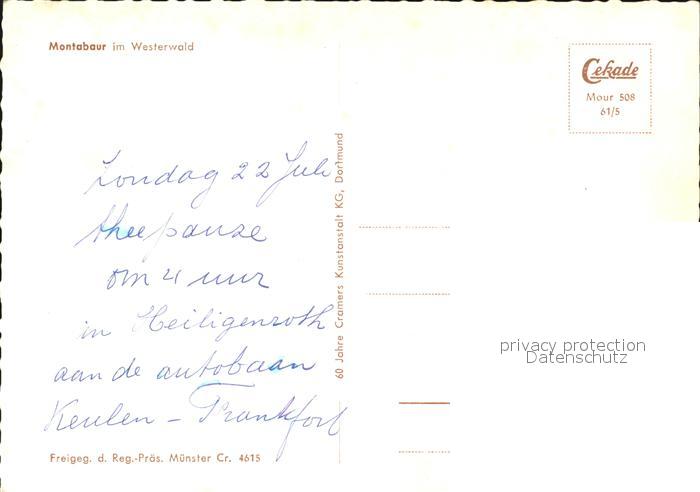 Montabaur im Westerwald
Cekade
Mour 508
61/5
Zondag 22 Juli
theepauze
om 4 uur
in Heiligenroth
aan de autobaan
Keulen – Frankfort
60 Jahre Cramers Kunstanstalt KG, Dortmund
privacy protection
Datenschutz
Freigeg. d. Reg.-Präs. Münster Cr. 4615